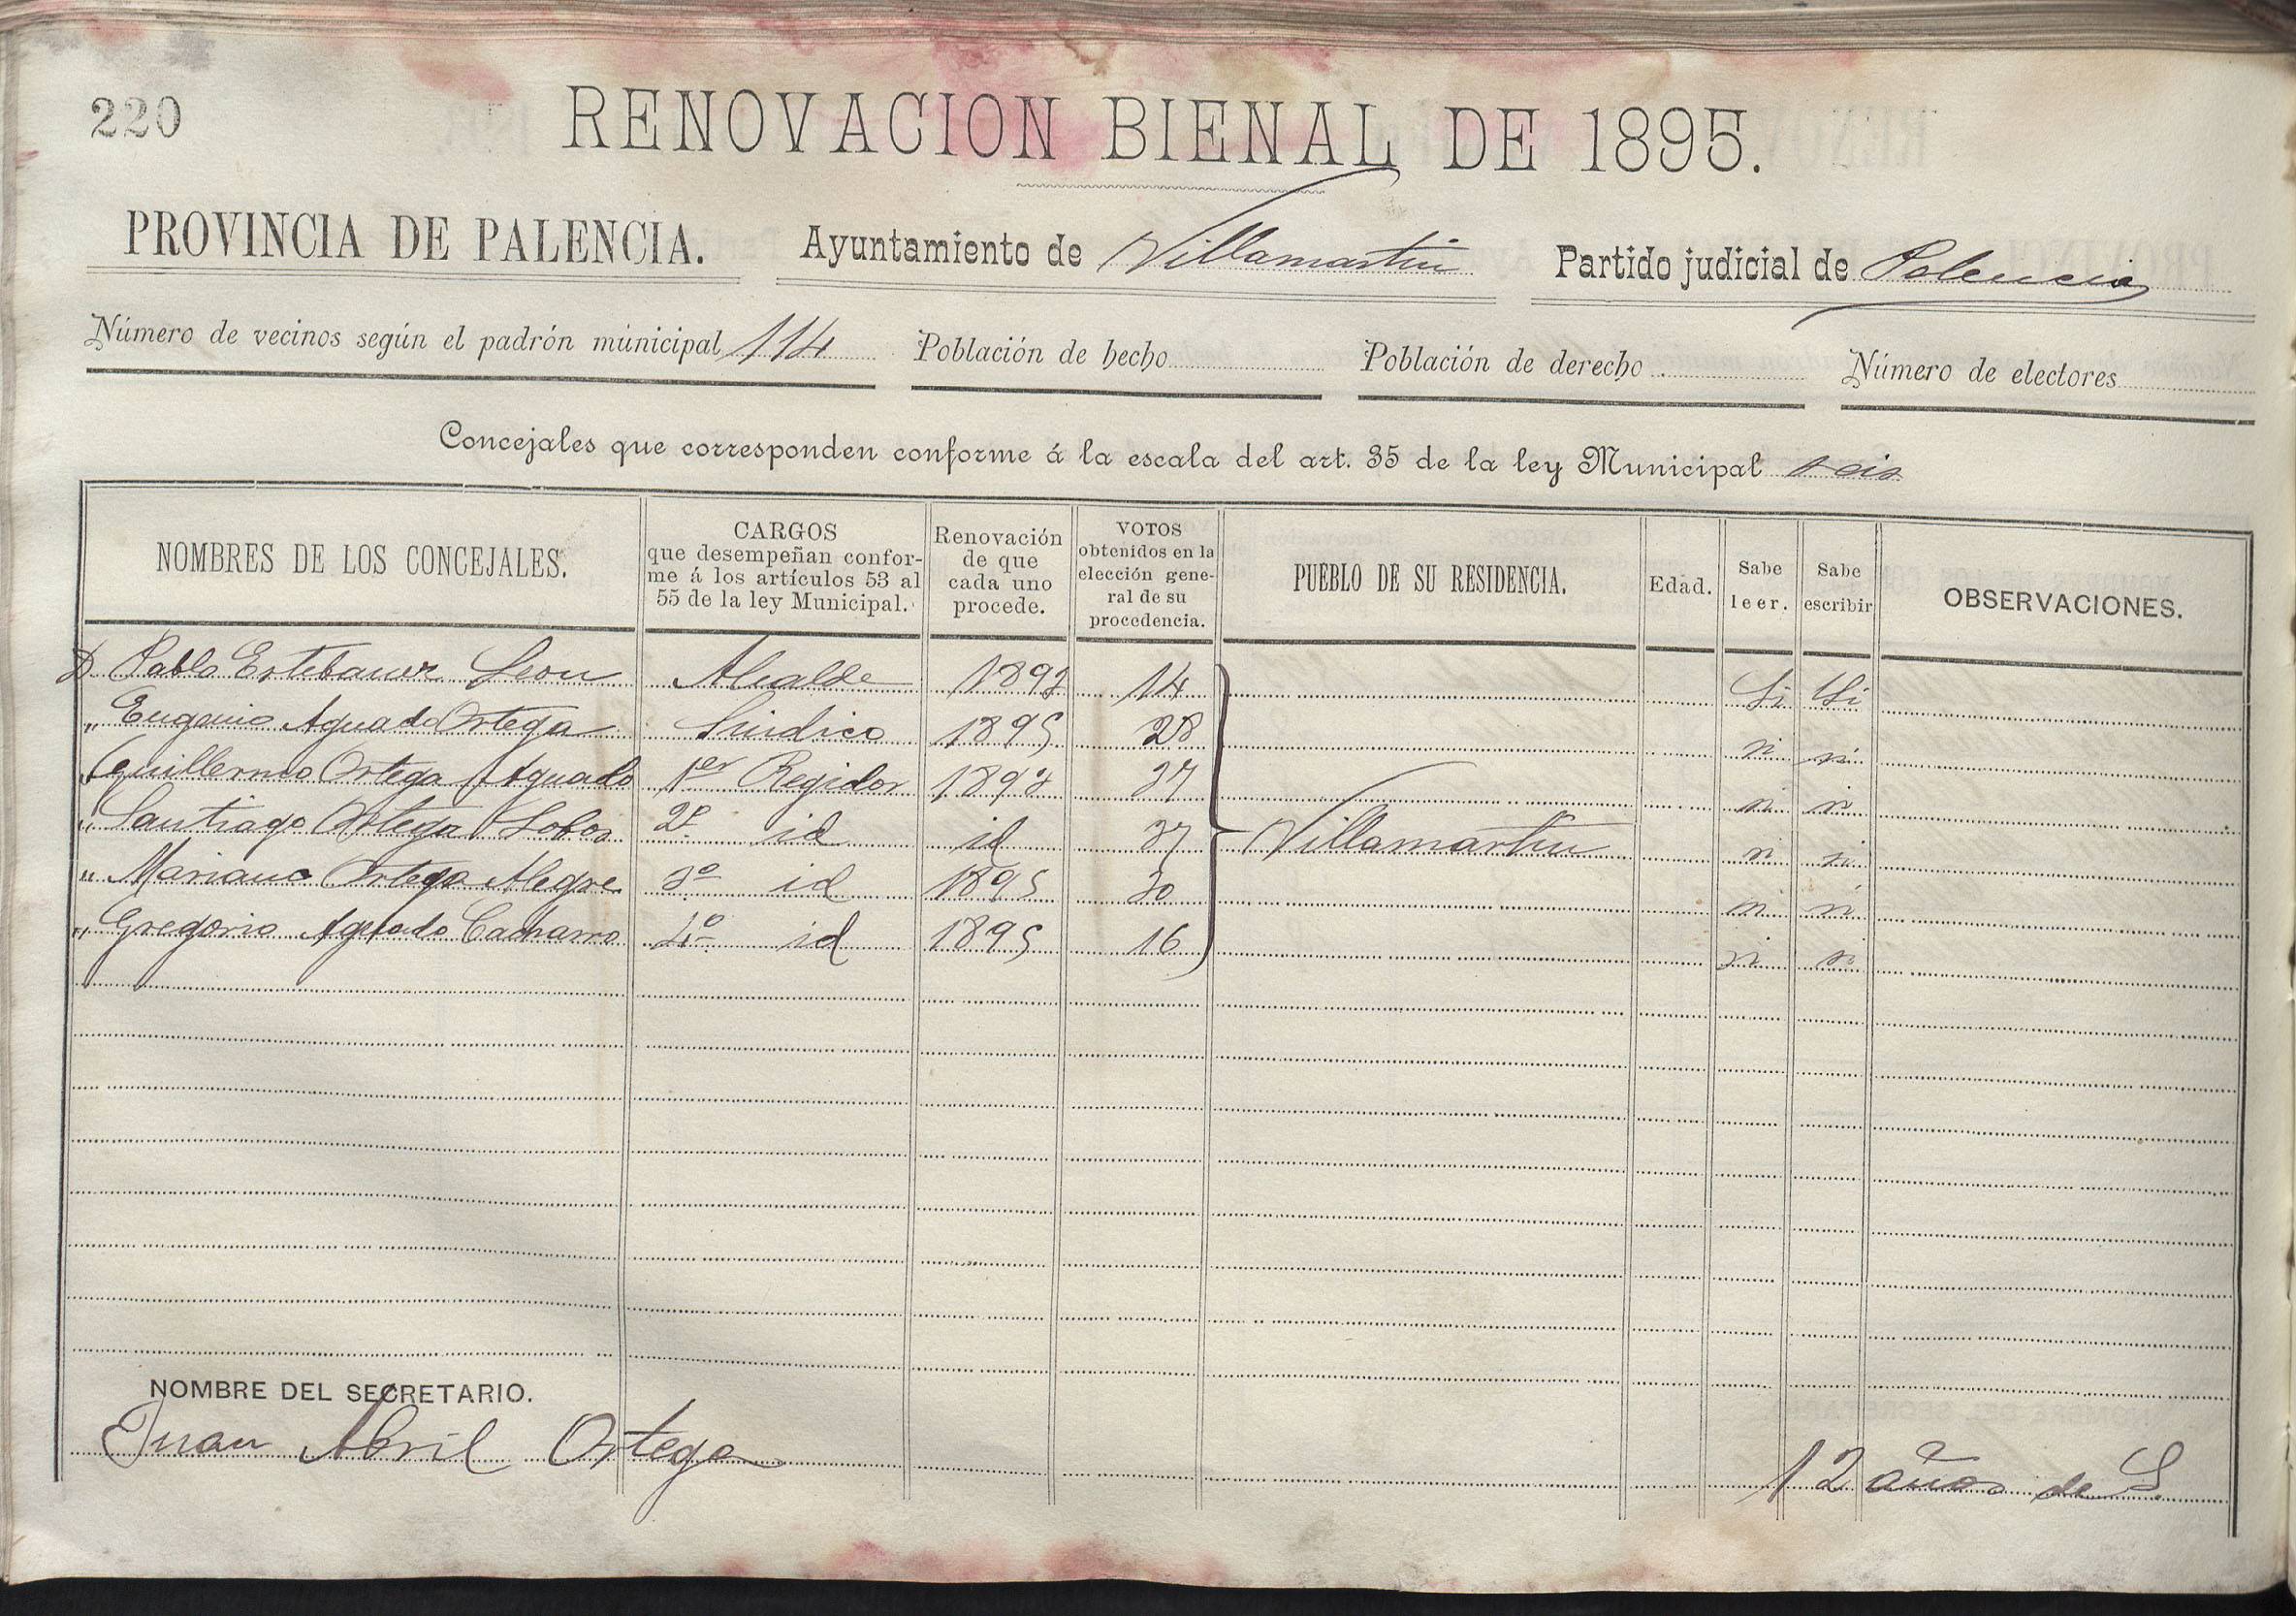 220
RENOVACION BIENAL DE 1895.
PROVINCIA DE PALENCIA. Ayuntamiento de Villamartin Partido judicial de Palencia
Número de vecinos según el padrón municipal 114 Población de hecho Población de derecho Número de electores
Concejales que corresponden conforme á la escala del art. 35 de la ley Municipal seis
NOMBRES DE LOS CONCEJALES. CARGOS que desempeñan conforme á los artículos 53 al 55 de la ley Municipal. Renovación de que cada uno procede. VOTOS obtenidos en la elección general de su procedencia. PUEBLO DE SU RESIDENCIA. Edad. Sabe leer. Sabe escribir OBSERVACIONES.
D. Pablo Estebanez Leon Alcalde 14 Si Si
" Eugenio Aguado Ortega Sindico 1895 28 si si
" Guillermo Ortega Aguado 1er Regidor si si
" Santiago Ortega Lobos 2º id id Villamartin si si
" Mariano Ortega Alegre 3º id 1895 si si
" Gregorio Aguado Cacharro 4º id 1895 16 si si
NOMBRE DEL SECRETARIO.
Juan Abril Ortega 12 años de S.